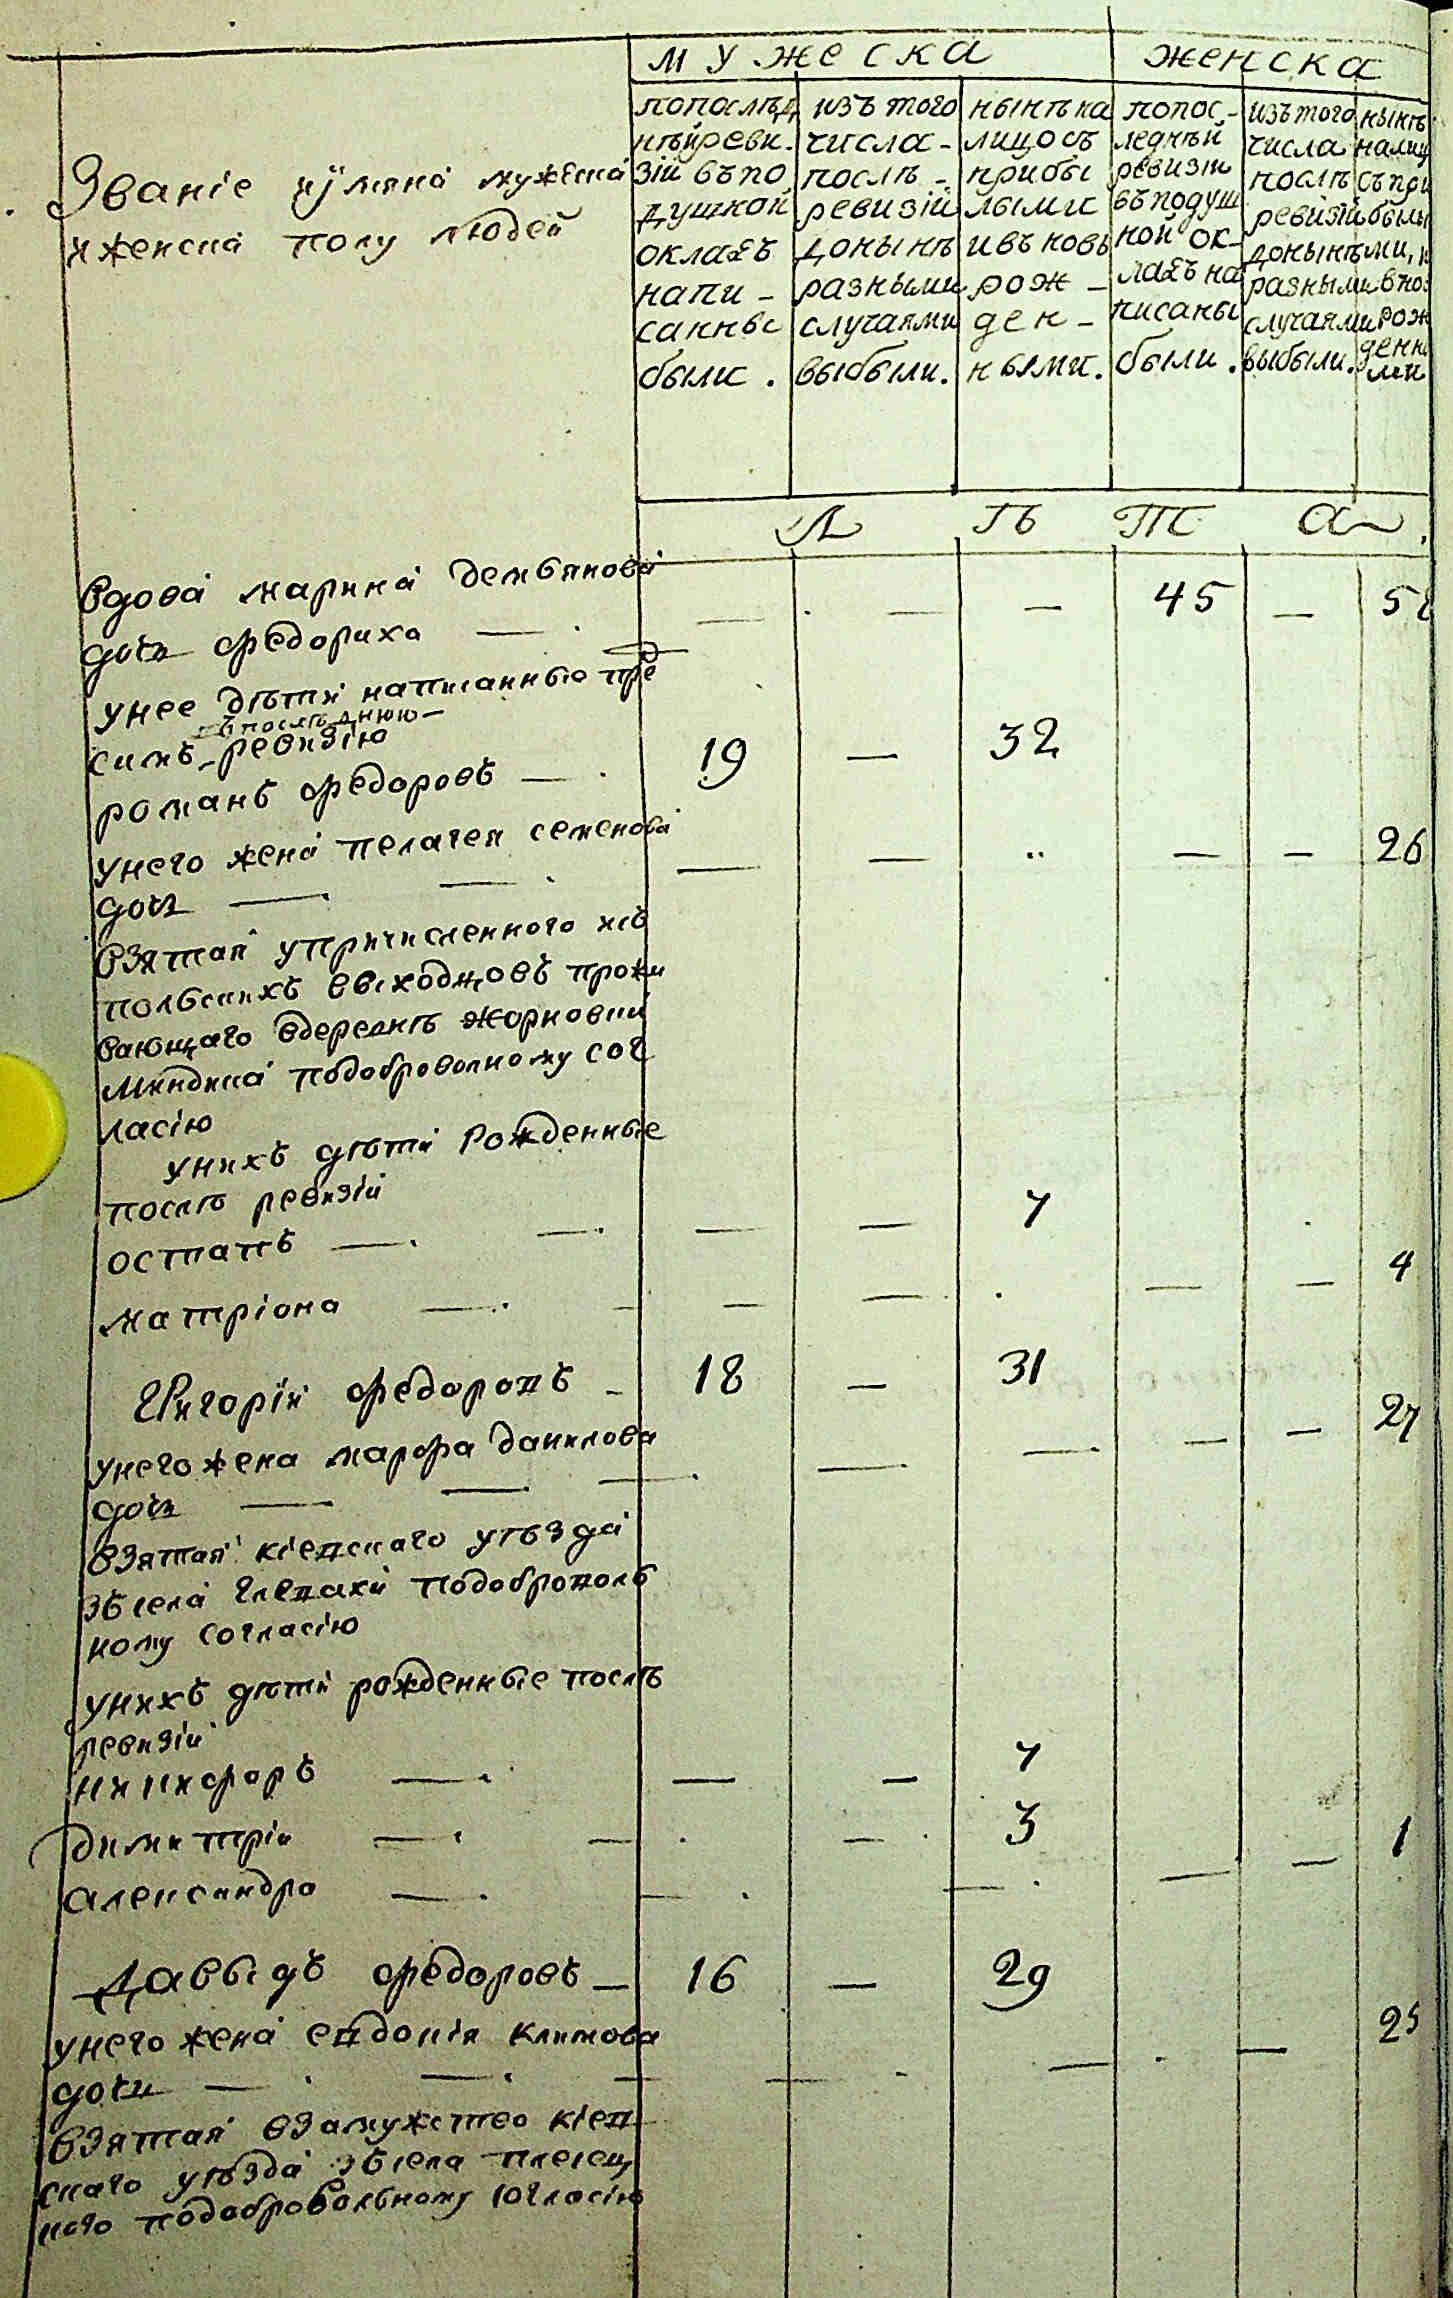 мужеска женска
Званіе иўмяна мужеска
иженска полу людей
попаслѣд
нѣйреви-
зій въпо
душной
окладъ
напи-
санны
были.
изъ того
числа-
послѣ-
ревизій
донынѣ
разными
случаями
выбыли.
нынѣ на
лицо съ
прибы
лыми
ивъ новь
рож-
ден-
ными.
попос-
леднѣй
ревизіи
въ подуш
ной ок-
ладъ на
писаны
были.
изъ того
числа
послѣ
ревизій
донынѣ
разными
случаями
выбыли.
нынѣ
налиц
съ при
былы
ми, и
вно
рож
денны
ми
Л ѣ т а.
вдова марина демьянова
дочь федориха — 45 — 5
унее дѣти написанные пред
въпослѣднюю
симъ ревизію
романъ федоровъ — 19 — 32
унего жена пелагея семенова
дочь — 26
взятая упричисленного изъ
польскихъ выходцовъ прожи
вающаго вдеревнѣ жорновки
Миндика подобровольному сог
ласію
унихъ дѣти рожденные
послѣ ревизій
остапъ — — — 7
матріона — — — 4
Григорій федоровъ — 18 — 31
унего жена марфа данилова
дочь — 27
взятая кіевскаго уѣзда
зъсела глевахи подоброволь
ному согласію
унихъ дѣти рожденные послѣ
ревизіи
никифоръ — — — 7
димитрій — — — 3
александра — — — 1
Давыдъ федоровъ — 16 — 29
унего жена евдокія климова
дочь — 25
взятая взамужство кіев
скаго уѣзда зъсела плесец
кого подобровольному согласію